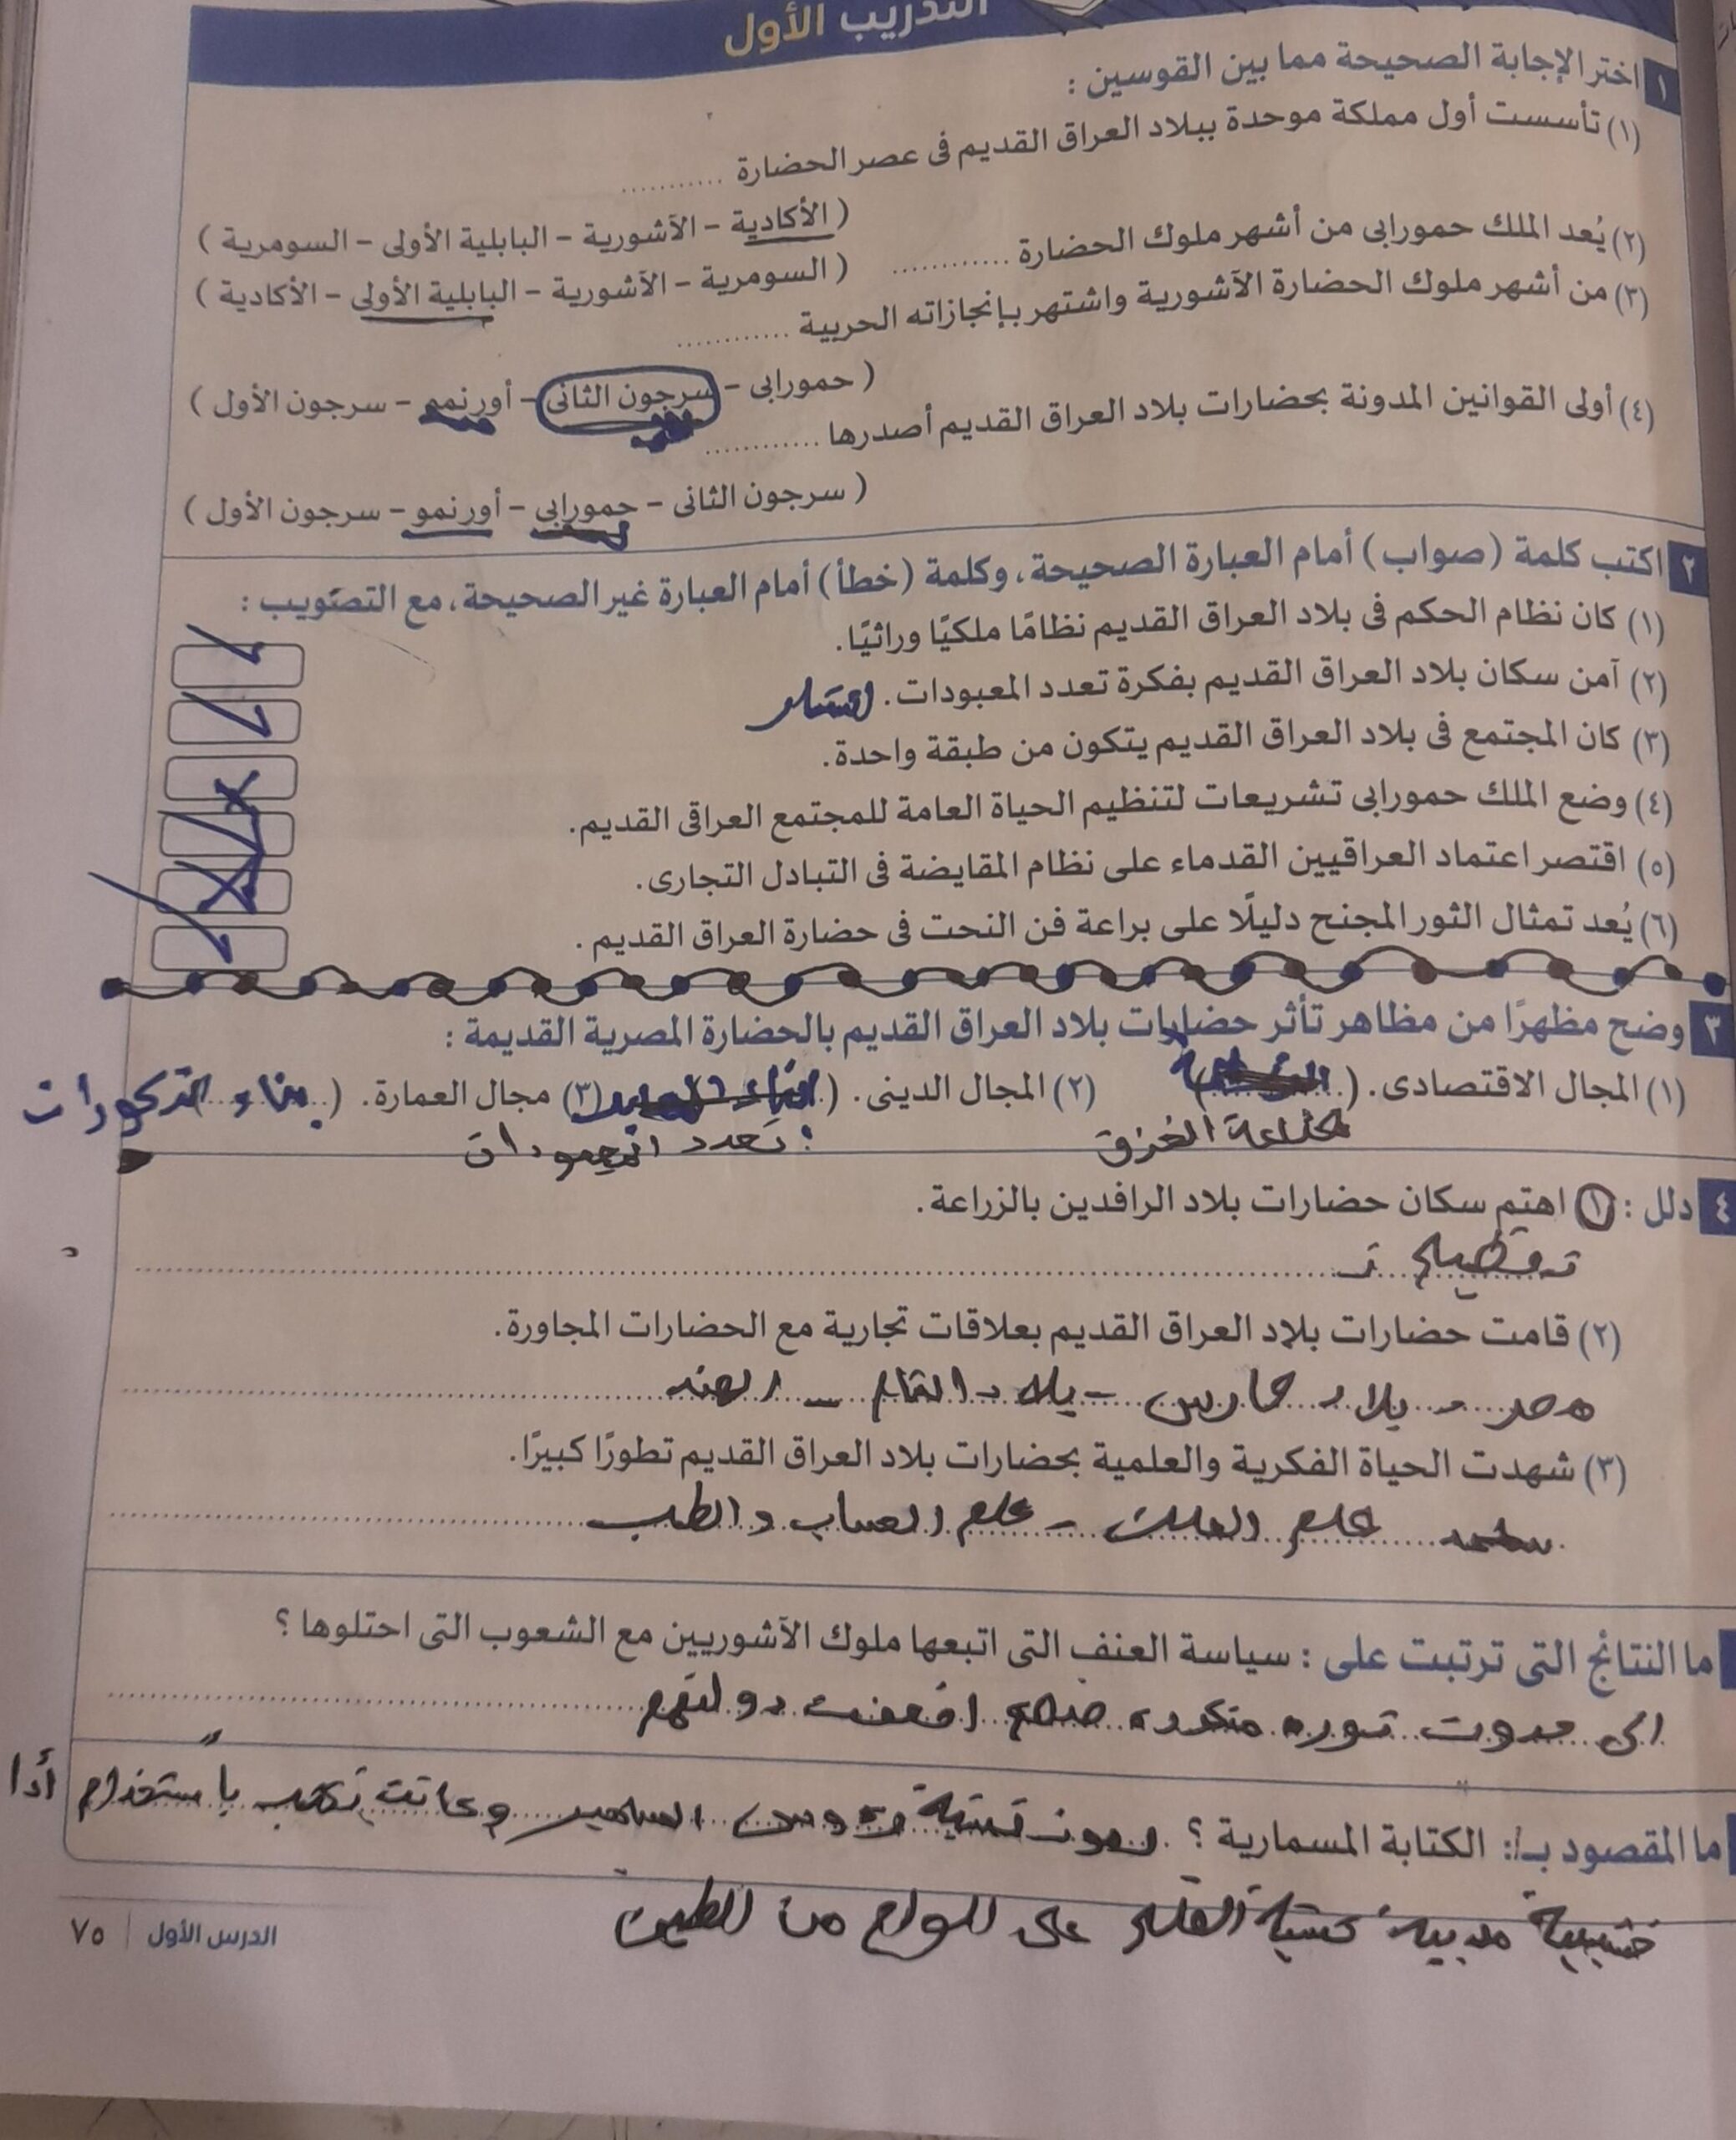 التدريب الأول
١ اختر الإجابة الصحيحة مما بين القوسين :
(١) تأسست أول مملكة موحدة ببلاد العراق القديم فى عصر الحضارة ............
( الأكادية – الآشورية – البابلية الأولى – السومرية )
(٢) يُعد الملك حمورابى من أشهر ملوك الحضارة ............
( السومرية – الآشورية – البابلية الأولى – الأكادية )
(٣) من أشهر ملوك الحضارة الآشورية واشتهر بإنجازاته الحربية ............
( حمورابى – سرجون الثانى – أورنمو – سرجون الأول )
(٤) أولى القوانين المدونة بحضارات بلاد العراق القديم أصدرها ............
( سرجون الثانى – حمورابى – أورنمو – سرجون الأول )
٢ اكتب كلمة (صواب) أمام العبارة الصحيحة، وكلمة (خطأ) أمام العبارة غير الصحيحة، مع التصويب :
(١) كان نظام الحكم فى بلاد العراق القديم نظامًا ملكيًا وراثيًا.
(٢) آمن سكان بلاد العراق القديم بفكرة تعدد المعبودات.
(٣) كان المجتمع فى بلاد العراق القديم يتكون من طبقة واحدة.
(٤) وضع الملك حمورابى تشريعات لتنظيم الحياة العامة للمجتمع العراقى القديم.
(٥) اقتصر اعتماد العراقيين القدماء على نظام المقايضة فى التبادل التجارى.
(٦) يُعد تمثال الثور المجنح دليلًا على براعة فن النحت فى حضارة العراق القديم.
٣ وضح مظهرًا من مظاهر تأثر حضارات بلاد العراق القديم بالحضارة المصرية القديمة :
(١) المجال الاقتصادى. ( ) (٢) المجال الدينى. ( ) (٣) مجال العمارة. ( بناء الزكورات
صناعة الخزف تعدد المعبودات
٤ دلل : (١) اهتم سكان حضارات بلاد الرافدين بالزراعة.
(٢) قامت حضارات بلاد العراق القديم بعلاقات تجارية مع الحضارات المجاورة.
مصر – بلاد فارس – بلاد الشام – الهند
(٣) شهدت الحياة الفكرية والعلمية بحضارات بلاد العراق القديم تطورًا كبيرًا.
علم الفلك – علم الحساب والطب
ما النتائج التى ترتبت على : سياسة العنف التى اتبعها ملوك الآشوريين مع الشعوب التى احتلوها ؟
الى حدوث ثوره متكرره ضدهم اضعفت دولتهم
ما المقصود بـ : الكتابة المسمارية ؟ رموز تشبة رءوس المسامير وكانت تكتب باستخدام أدا
خشبية مدببة تشبة القلم على الواح من الطين
الدرس الأول | ٧٥